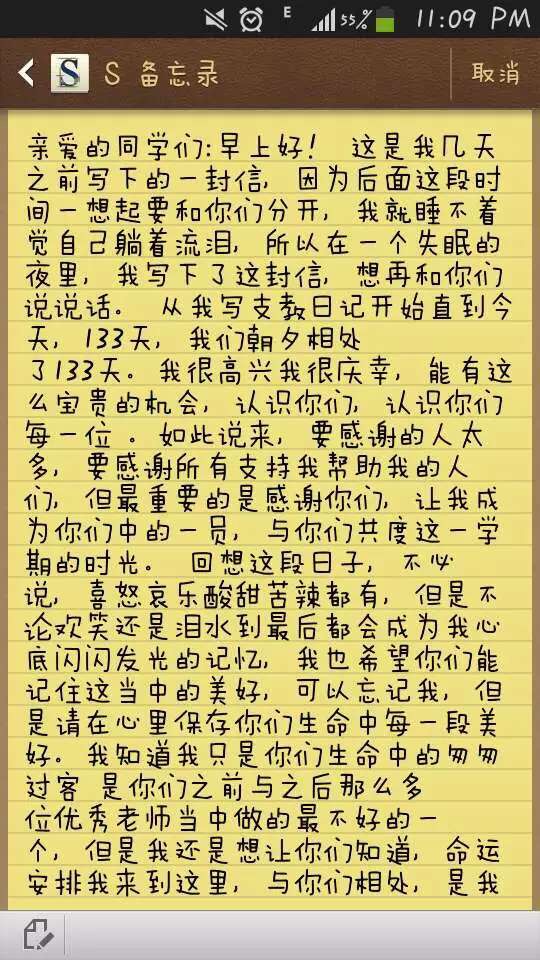 E 55% 11:09 PM
S S 备忘录 取消
亲爱的同学们:早上好! 这是我几天
之前写下的一封信, 因为后面这段时
间一想起要和你们分开, 我就睡不着
觉自己躺着流泪, 所以在一个失眠的
夜里, 我写下了这封信, 想再和你们
说说话。 从我写支教日记开始直到今
天, 133天, 我们朝夕相处
了133天。我很高兴我很庆幸, 能有这
么宝贵的机会, 认识你们, 认识你们
每一位 。如此说来, 要感谢的人太
多, 要感谢所有支持我帮助我的人
们, 但最重要的是感谢你们, 让我成
为你们中的一员, 与你们共度这一学
期的时光。 回想这段日子, 不必
说, 喜怒哀乐酸甜苦辣都有, 但是不
论欢笑还是泪水到最后都会成为我心
底闪闪发光的记忆, 我也希望你们能
记住这当中的美好, 可以忘记我, 但
是请在心里保存你们生命中每一段美
好。我知道我只是你们生命中的匆匆
过客 是你们之前与之后那么多
位优秀老师当中做的最不好的一
个, 但是我还是想让你们知道, 命运
安排我来到这里, 与你们相处, 是我